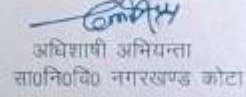 अधिशाषी अभियन्ता
सा०नि०वि० नगरखण्ड कोटा